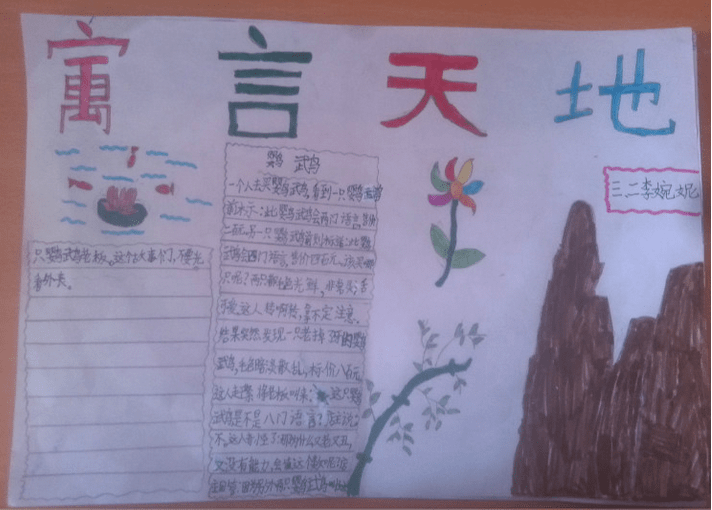 寓言天地
三二李婉妮
鹦鹉
一个人去买鹦鹉,看到一只鹦鹉
前标示:此鹦鹉会两门语言,售价
二百元。另一只鹦鹉前则标道:此鹦
鹉会四门语言,售价四百元。该买哪
只呢?两只都毛色光鲜,非常灵活
可爱。这人转啊转,拿不定主意。
结果突然发现一只老掉牙的鹦
鹉,毛色暗淡散乱,标价八百元。
这人赶紧将老板叫来:这只鹦
鹉是不是八门语言?店主说:
不。这人奇怪了:那为什么又老又丑,
又没有能力,会值这
只鹦鹉叫老板。这个故事告诉我们,不要光
看外表。